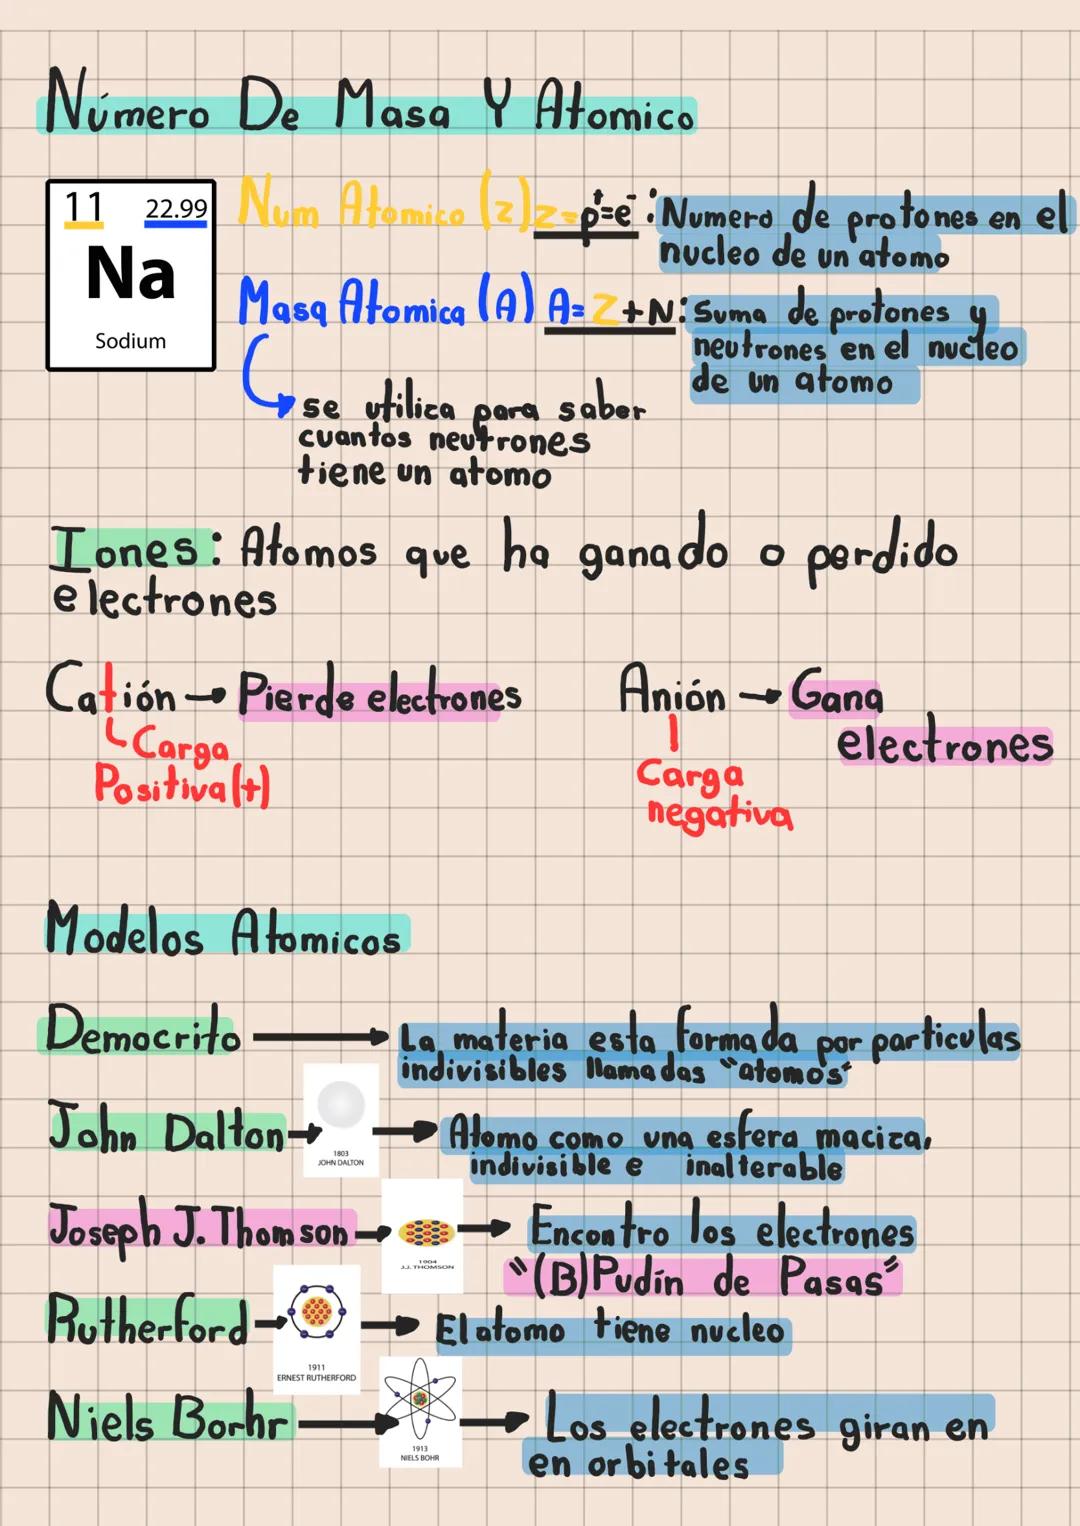 Número De Masa Y Atomico
11 22.99
Na
Sodium
Num Atomico (z) z=p⁺=e⁻: Numero de protones en el
nucleo de un atomo
Masa Atomica (A) A=Z+N: Suma de protones y
neutrones en el nucleo
de un atomo
se utiliza para saber
cuantos neutrones
tiene un atomo
Iones: Atomos que ha ganado o perdido
electrones
Catión → Pierde electrones
Carga
Positiva(+)
Anión → Gana
electrones
Carga
negativa
Modelos Atomicos
Democrito → La materia esta formada por particulas
indivisibles llamadas "atomos"
John Dalton → 1803
JOHN DALTON
→ Atomo como una esfera maciza,
indivisible e inalterable
Joseph J. Thomson → 1904
J.J. THOMSON
→ Encontro los electrones
"(B)Pudín de Pasas"
Rutherford → 1911
ERNEST RUTHERFORD
→ El atomo tiene nucleo
Niels Borhr → 1913
NIELS BOHR
→ Los electrones giran en
en orbitales